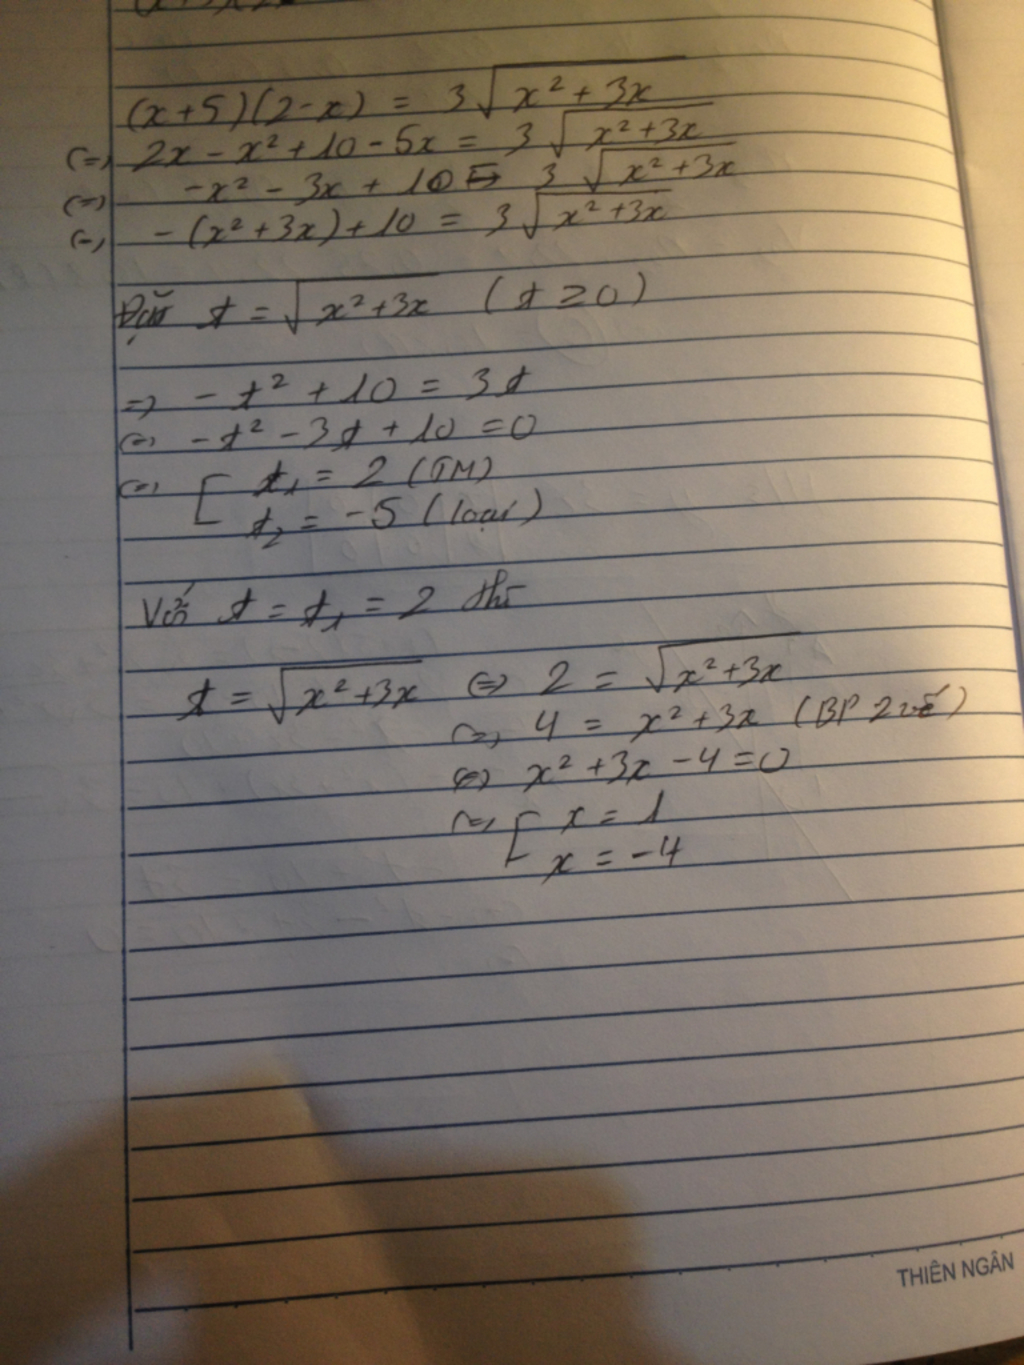 (x+5)(2-x) = 3√(x²+3x)
(=) 2x - x² + 10 - 5x = 3√(x²+3x)
(=) -x² - 3x + 10 = 3√(x²+3x)
(=) -(x²+3x)+10 = 3√(x²+3x)
Đặt t = √(x²+3x) (t ≥ 0)
=> -t² + 10 = 3t
(=) -t² - 3t + 10 = 0
(=) [ t₁ = 2 (TM)
t₂ = -5 (loại)
Với t = t₁ = 2 thì
t = √(x²+3x) (=) 2 = √(x²+3x)
(=) 4 = x²+3x (BP 2 vế)
(=) x² + 3x - 4 = 0
(=) [ x = 1
x = -4
THIÊN NGÂN